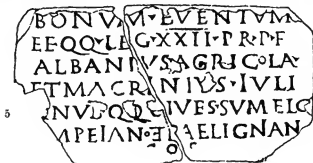 BONVM·EVENTVM
EEQQ·LEG·XXII·PR·P·F
ALBANIVS·AGRICOLA·
ETMACRINIVS·IVLI
NVS CIVESSVMELO
AELIGNAN
5